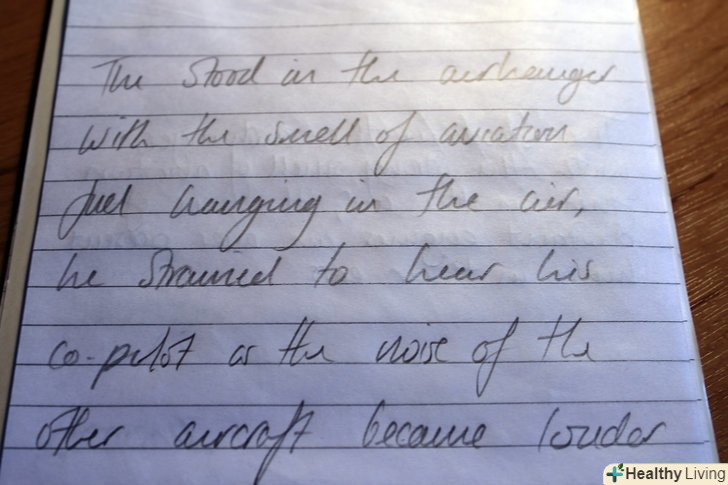 The stood in the airhanger
with the smell of aviation
fuel hanging in the air,
he strained to hear his
co-pilot as the noise of the
other aircraft became louder
Healthy Living